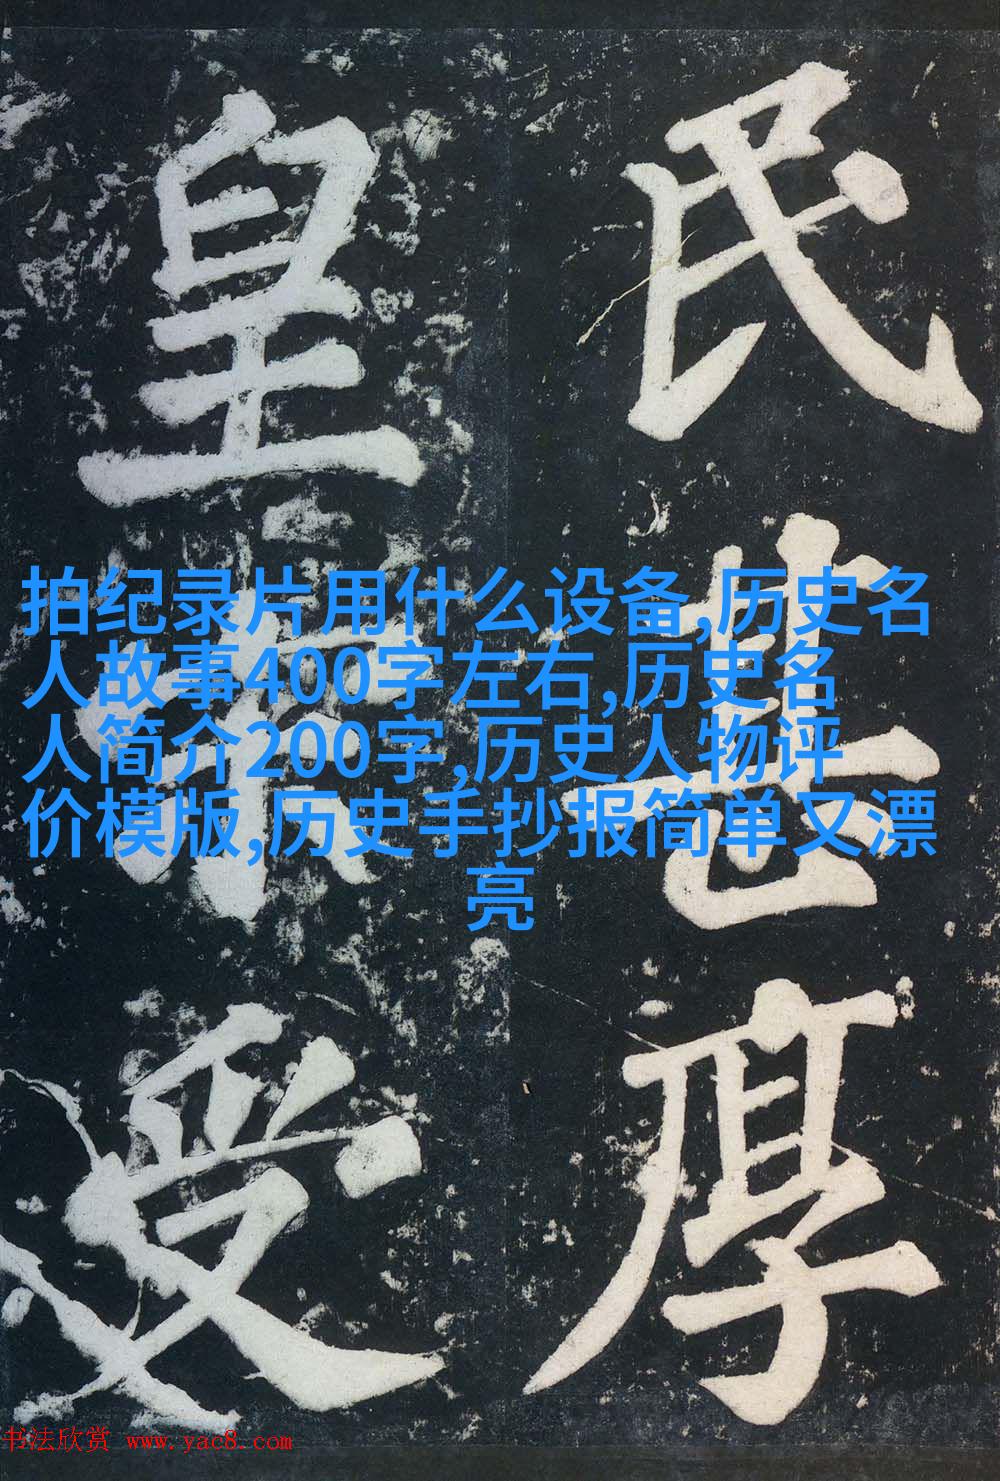 民甚厚
皇帝受
拍纪录片用什么设备,历史名
人故事400字左右,历史名
人简介200字,历史人物评
价模版,历史手抄报简单又漂
亮
书法欣赏 www.yac8.com